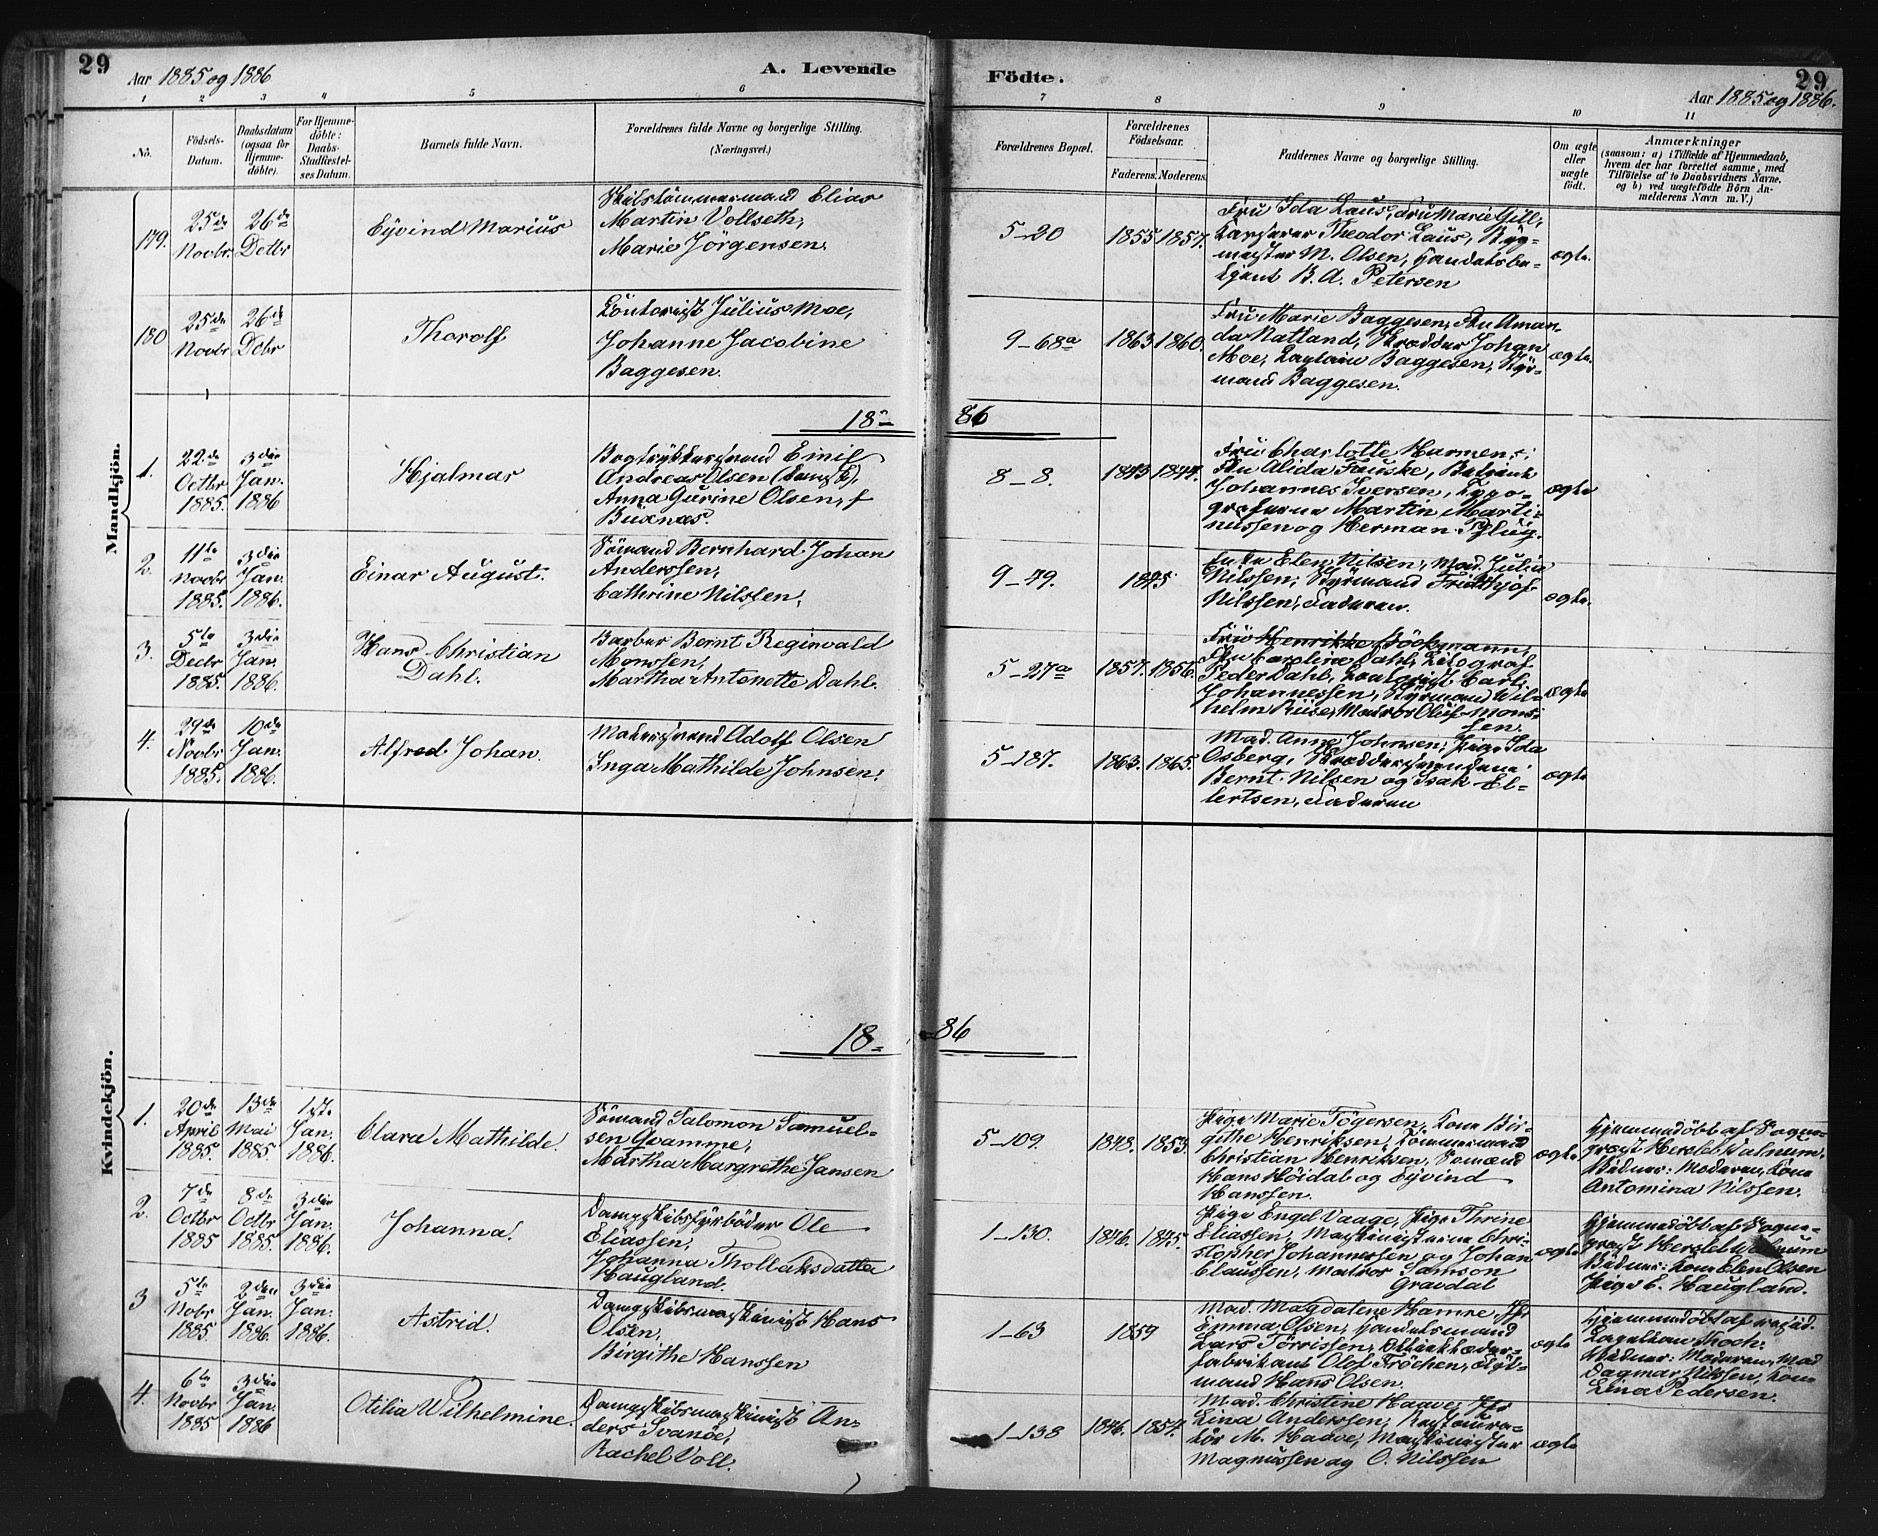 29
Aar 1885 og 1886
A. Levende
Födte.
29
Aar 1885 og 1886.
1 2 3 4 5 6 7 8 9 10 11
No.
Födsels-
Datum.
Daabsdatum
(ogsaa for
Hjemme-
döbte).
For Hjemme-
döbte:
Daabs-
Stadfæstel-
ses Datum.
Barnets fulde Navn.
Forældrenes fulde Navne og borgerlige Stilling.
(Næringsvei.)
Forældrenes Bopæl.
Forældrenes
Födselsaar.
Faderens. Moderens.
Faddernes Navne og borgerlige Stilling.
Om ægte
eller
uægte
født.
Anmærkninger
(saasom: a) i Tilfælde af Hjemmedaab,
hvem der har forrettet samme, med
Tilföielse af to Daabsvidners Navne.
og b) ved uægtefödte Börn An-
melderens Navn m. V.)
Mandkjön.
179.
25de
Novbr.
26de
Decbr
Eyvind Marius
Elias
Martin Vollseth,
Marie Jörgensen.
5-20
1855 1857.
Fru Ida Laus, Fru Marie Gill,
Theodor Laus, Byg-
mester M. Olsen, Handelsbe-
tjent B. A. Petersen
ægte.
180
25de
Novbr
26de
Dcbr
Thorolf
Kontorist Julius Moe,
Johanne Jacobine
Baggesen.
9-68a
1863 1860.
Fru Marie Baggesen, Fru Aman-
da Natland, Skrædder Johan
Moe, Kaptein Baggesen, Styr-
mand Baggesen.
ægte.
18-
86
1.
22de
Octbr
1885.
3die
Jan.
1886
Hjalmar
Bogtrykkersvend Emil
Andreas Olsen
Anna Gurine Olsen, f
Buxnæs.
8-8.
1843 1844.
Fru Charlotte Harmens,
Fru Alida Fauske, Betjent
Johannes Iversen, Typo-
graferne Martin Marti-
nussen og Herman Pflug.
ægte
2.
11te
Novbr
1885.
3die
Jan.
1886.
Einar August.
Sömand Bernhard Johan
Anderssen,
Cathrine Nilssen,
9-49.
1845
Enke Elen Nilsen, Mad. Julie
Nilssen, Styrmand Fridthjof
Nilssen, Faderen.
ægte.
3.
5te
Decbr
1885.
3die
Jan.
1886.
Hans Christian
Dahl.
Barber Bernt Reginvald
Monssen,
Martha Antonette Dahl.
5-27a
1857. 1856.
Fru Henrikke Böckmann,
Fru Caroline Dahl, Litograf
Peder Dahl, Carl
Johannessen, Styrmand Wil-
helm Riise, Matros Oluf Mons-
sen.
ægte
4.
29de
Novbr
1885.
10de
Jan.
1886.
Alfred Johan.
Malersvend Adolf Olsen
Inga Mathilde Johnsen.
5-187.
1863. 1865.
Mad. Anne Johnsen, Pige Ida
Osberg, Skræddersvendene
Bernt Nilsen og Isak El-
lertsen, Faderen
ægte
Kvindekjön.
18-
-86
1.
20de
April
1885.
13de
Mai
1885.
1st.
Jan.
1886.
Clara Mathilde.
Sömand Salomon Samuel-
sen Qvamme,
Martha Margrethe Jansen
5-109.
1848. 1853.
Pige Marie Tögersen, Kone Bir-
githe Henriksen, Tömmermand
Christian Henriksen, Sömænd
Hans Höidal og Eyvind
Hanssen.
ægte
Hjemmedöbt af Sogne-
prest Hersleb Walnum.
Vidner: Moderen, Kone
Antomina Nilssen.
2.
7de
Octbr
1885
8de
Octbr
1885.
3die
Jan.
1886.
Johanna.
Dampskibsfyrböder Ole
Eliassen,
Johanna Thollaksdatter
Haugland.
1-130.
1846. 1845.
Pige Engel Vaage, Pige Thrine
Eliassen, Maskinisterne Chri-
stopher Johannessen og Johan
Claussen, Matros Samson
Gravdal
ægte
Hjemmedöbt af Sogne-
prest Hersleb Walnum
Vidner: Kone Elen Olsen
Pige E. Haugland.
3
5te
Nobr
1885.
2den
Jan.
1886.
3die
Jan.
1886.
Astrid.
Dampskibsmaskinist Hans
Olsen,
Birgithe Hanssen
1-63
1859
Mad. Magdalene Hamre, Pge
Emma Olsen, Handelsmand
Lars Törrissen,
fabrikant Olof Fröchen,
mand Hans Olsen.
ægte
Hjemmedöbt af resid.
Kapellan
Vidner: Moderen, Mad
Dagmar Nilssen, Kone
Lina Pedersen.
4.
6te
Novbr
1885
3die
Jan.
1886
Otilia Wilhelmine.
Dampskibsmaskinist An-
ders Svanöe,
Rachel Voll.
1-138
1846. 1854.
Mad. Christine Haave, Pge
Lina Anderssen, Restaura-
tör M. Haave, Maskinister
Magnussen og O. Nilssen
ægte